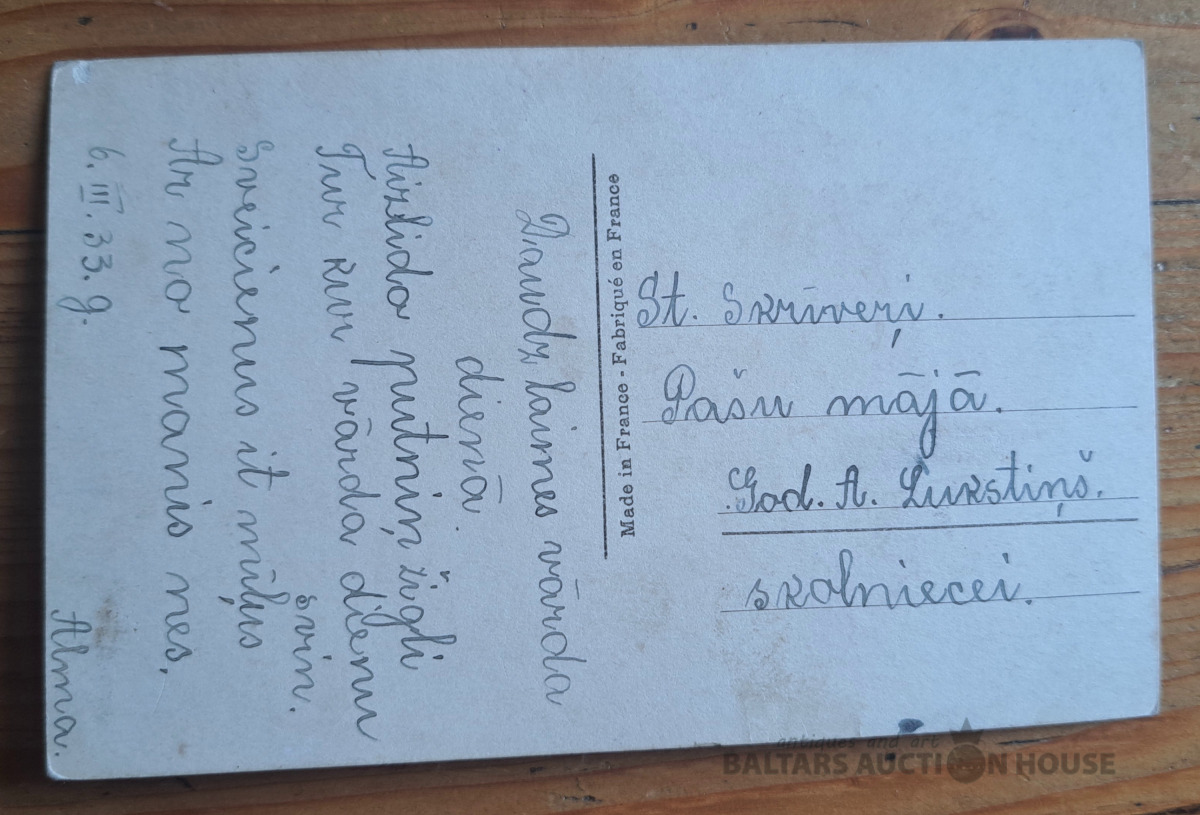 Daudz laimes vārda
dienā.
Aizlido putniņ žigli
Tur kur vārda dienu
svin.
Sveicienus it mīļus
Ar no manis nes.
6. III. 33. g.
Alma.
Made in France - Fabriqué en France
St. Skrīveŗi.
Pašu mājā.
God. A. Lukstiņš.
skolniecei.
antiques and art
BALTARS AUCTION HOUSE